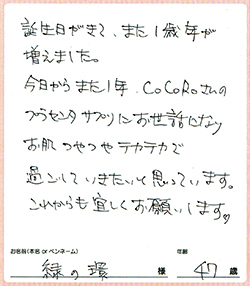 誕生日がきて、また1歳年が
増えました。
今日からまた1年、CoCoRoさんの
プラセンタサプリにお世話になり
お肌つやつやテカテカで
過ごしていきたいと思っています。
これからも宜しくお願いします♡
お名前(本名 or ペンネーム) 年齢
緑の環 様 47 歳